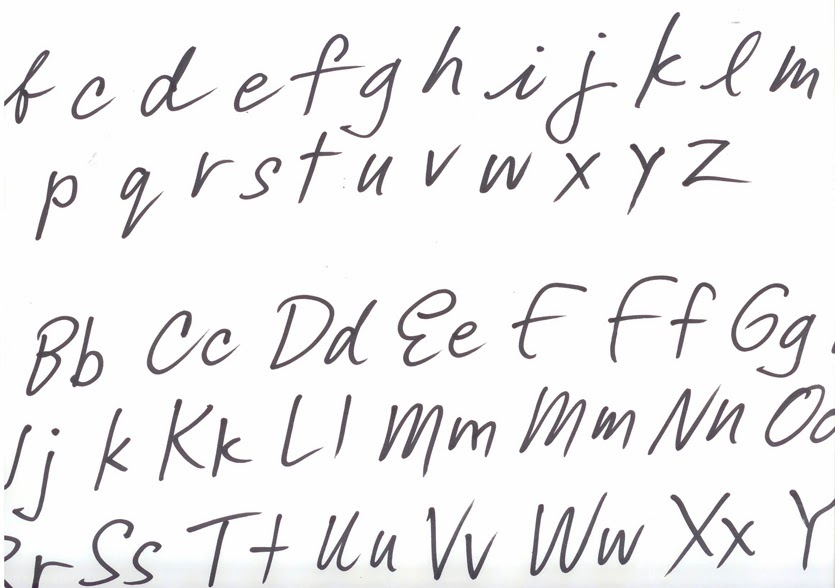 b c d e f g h i j k l m
p q r s t u v w x y z
Bb Cc Dd Ee F Ff Gg
Jj k Kk Ll Mm Mm Nn Oo
Rr Ss Tt Uu Vv Ww Xx Y